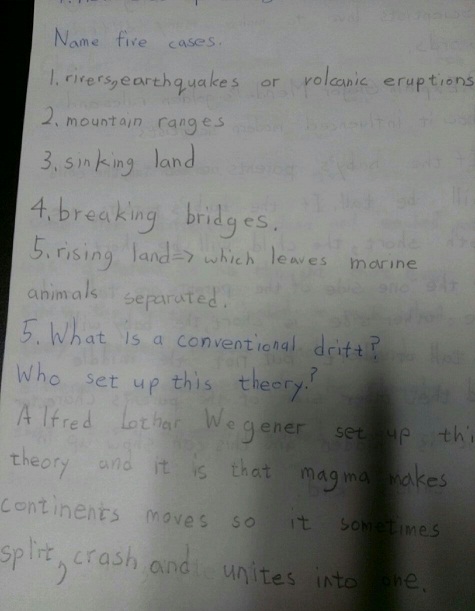 Name five cases.
1. rivers, earthquakes or volcanic eruptions
2. mountain ranges
3. sinking land
4. breaking bridges.
5. rising land => which leaves marine
animals separated.
5. What is a conventional drift?
Who set up this theory?
Alfred Lothar Wegener set up thi
theory and it is that magma makes
continents moves so it sometimes
split, crash, and unites into one.